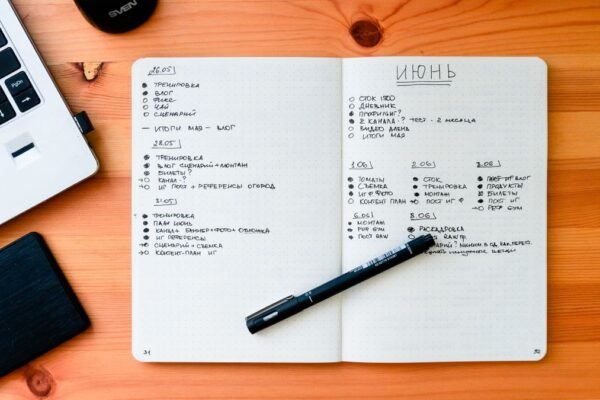 SVEN
PgDn
26.05
ТРЕНИРОВКА
ВЛОГ
ФИКС
ЧАЙ
СЦЕНАРИЙ
— ИТОГИ МАЯ – ВЛОГ
28.05
ТРЕНИРОВКА
ВЛОГ СЦЕНАРИЙ + МОНТАЖ
БИЛЕТЫ?
КАНАЛ - ?
ИГ ПОСТ + РЕФЕРЕНСЫ ОГОРОД
31.05
ТРЕНИРОВКА
ПЛАН ИЮНЬ
КАНАЛ + БАННЕР + ФОТО + ОБЛОЖКА
ИГ РЕФЕРЕНСЫ
СЦЕНАРИЙ + СЪЕМКА
КОНТЕНТ-ПЛАН ИГ
31
ИЮНЬ
СТОК 1500
ДНЕВНИК
2 КАНАЛА - ? ТЕСТ - 2 МЕСЯЦА
ВИДЕО
ИТОГИ МАЯ
1.06
ТОМАТЫ
СЪЕМКА
ИГ ФОТО
КОНТЕНТ ПЛАН
2.06
СТОК
ТРЕНИРОВКА
МОНТАЖ
ПОСТ ИГ
3.06
ВЛОГ
ПРОДУКТЫ
БИЛЕТЫ
ПОСТ ИГ
GYM
6.06
МОНТАЖ
GYM
ПОСТ RAW
8.06
РАСКАДРОВКА
RAW